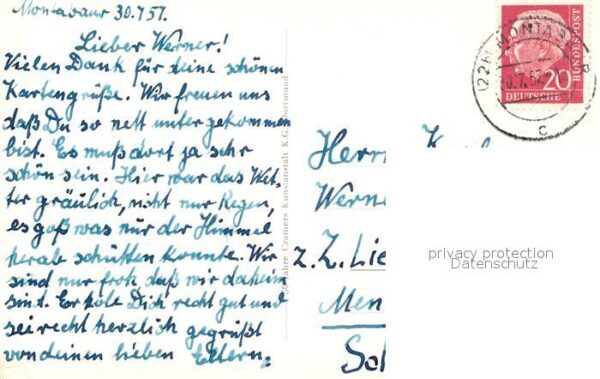 Montabaur 30.7.57.
Lieber Werner!
Vielen Dank für deine schönen
Kartengrüße. Wir freuen uns
daß Du so nett untergekommen
bist. Es muß dort ja sehr
schön sein. Hier war das Wet-
ter gräulich, nicht nur Regen,
es goß was nur der Himmel
herab schütten konnte. Wir
sind nur froh, daß wir daheim
sind. Erhole Dich recht gut und
sei recht herzlich gegrüßt
von deinen lieben Eltern.
Jahre Cramers Kunstanstalt K.G., Dortmund
(22b) MONTABAUR
c
20
DEUTSCHE
BUNDESPOST
Herrn
Werner
z. Z. Lie
Men
Sch
privacy protection
Datenschutz